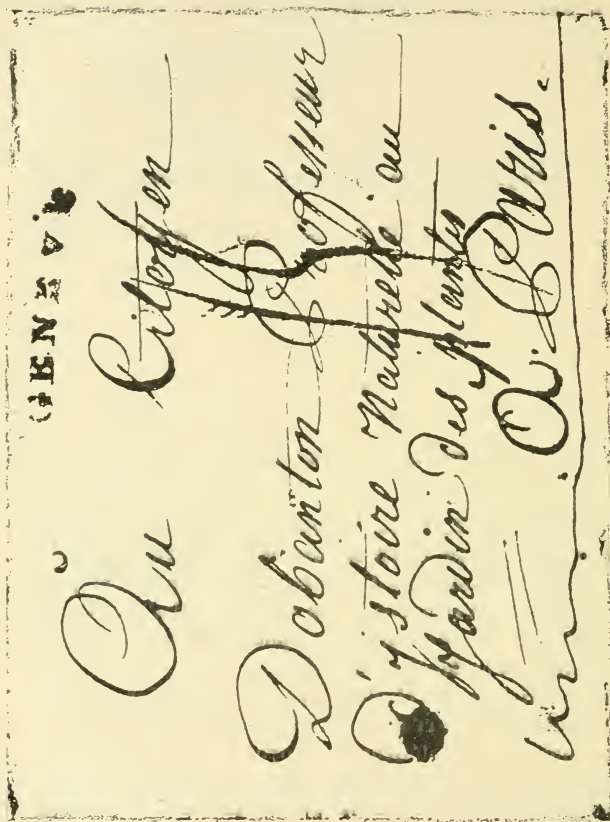 GENEV
Au Citoyen
Dobanton Professeur
D'istoire Naturelle au
Jardin des plantes
A Paris.